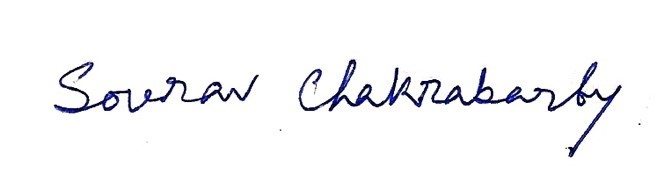 Sourav Chakrabarty